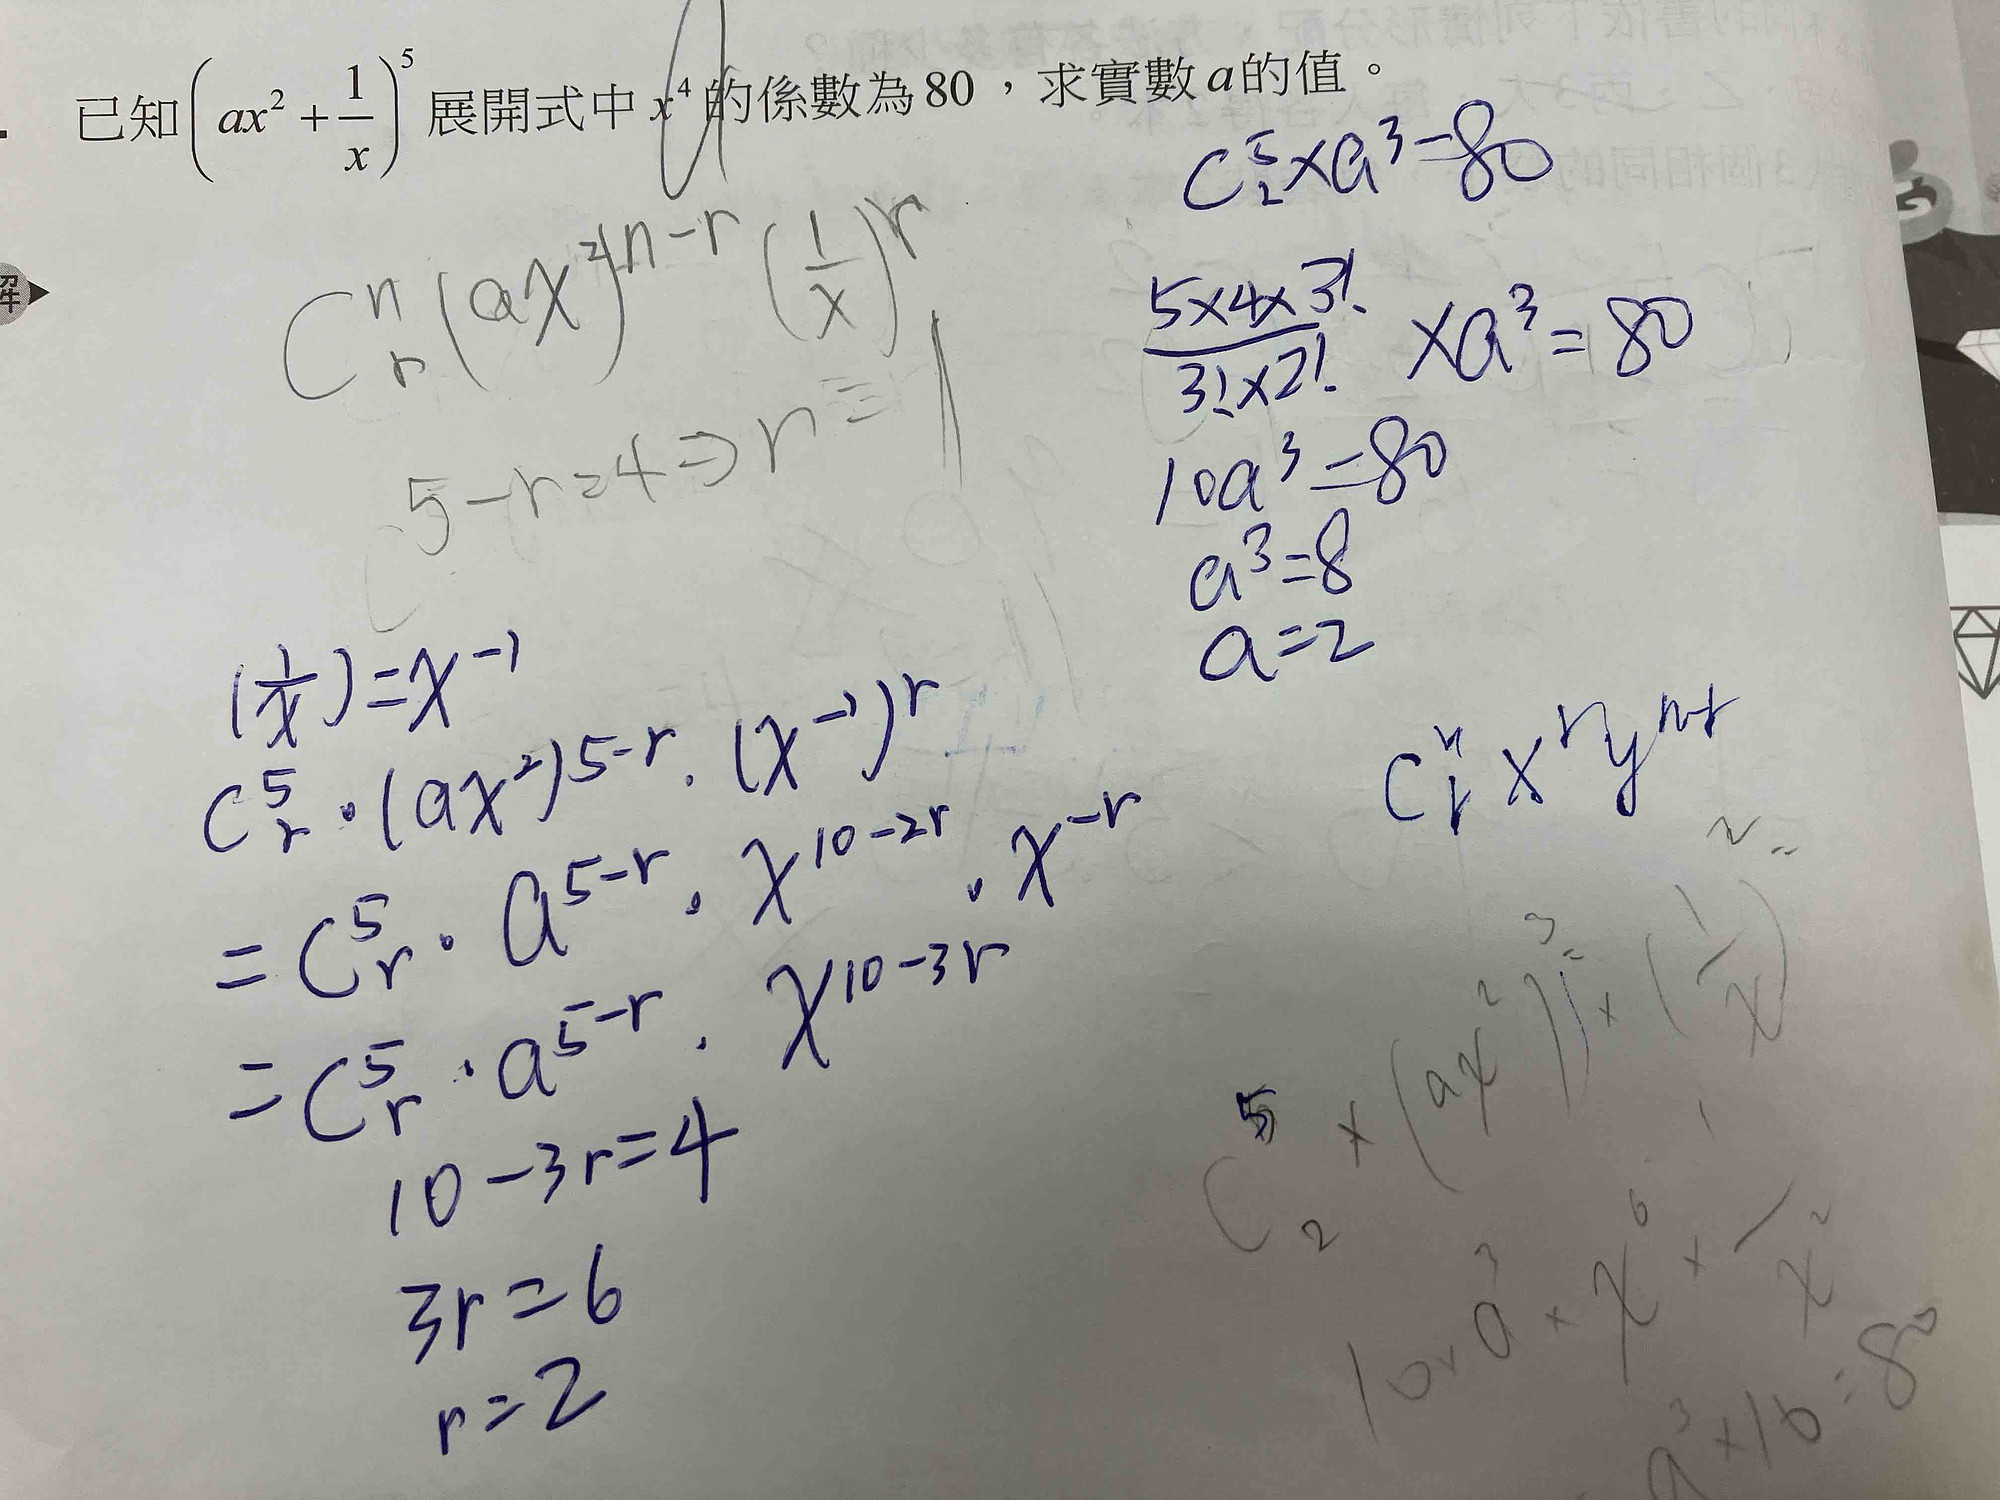 已知(ax²+1/x)⁵展開式中x⁴的係數為80，求實數a的值。
解
Cⁿᵣ(ax²)ⁿ⁻ʳ(1/x)ʳ
5-r=4⇒r=1
(1/x)=x⁻¹
C⁵ᵣ·(ax²)⁵⁻ʳ·(x⁻¹)ʳ
=C⁵ᵣ·a⁵⁻ʳ·x¹⁰⁻²ʳ·x⁻ʳ
=C⁵ᵣ·a⁵⁻ʳ·x¹⁰⁻³ʳ
10-3r=4
3r=6
r=2
C⁵₂×a³=80
5×4×3!/3!×2!×a³=80
10a³=80
a³=8
a=2
Cⁿᵣxʳyⁿ⁻ʳ
C⁵₂×(ax²)³×(1/x)²
10×a³×x⁶×1/x²
a³×10=80